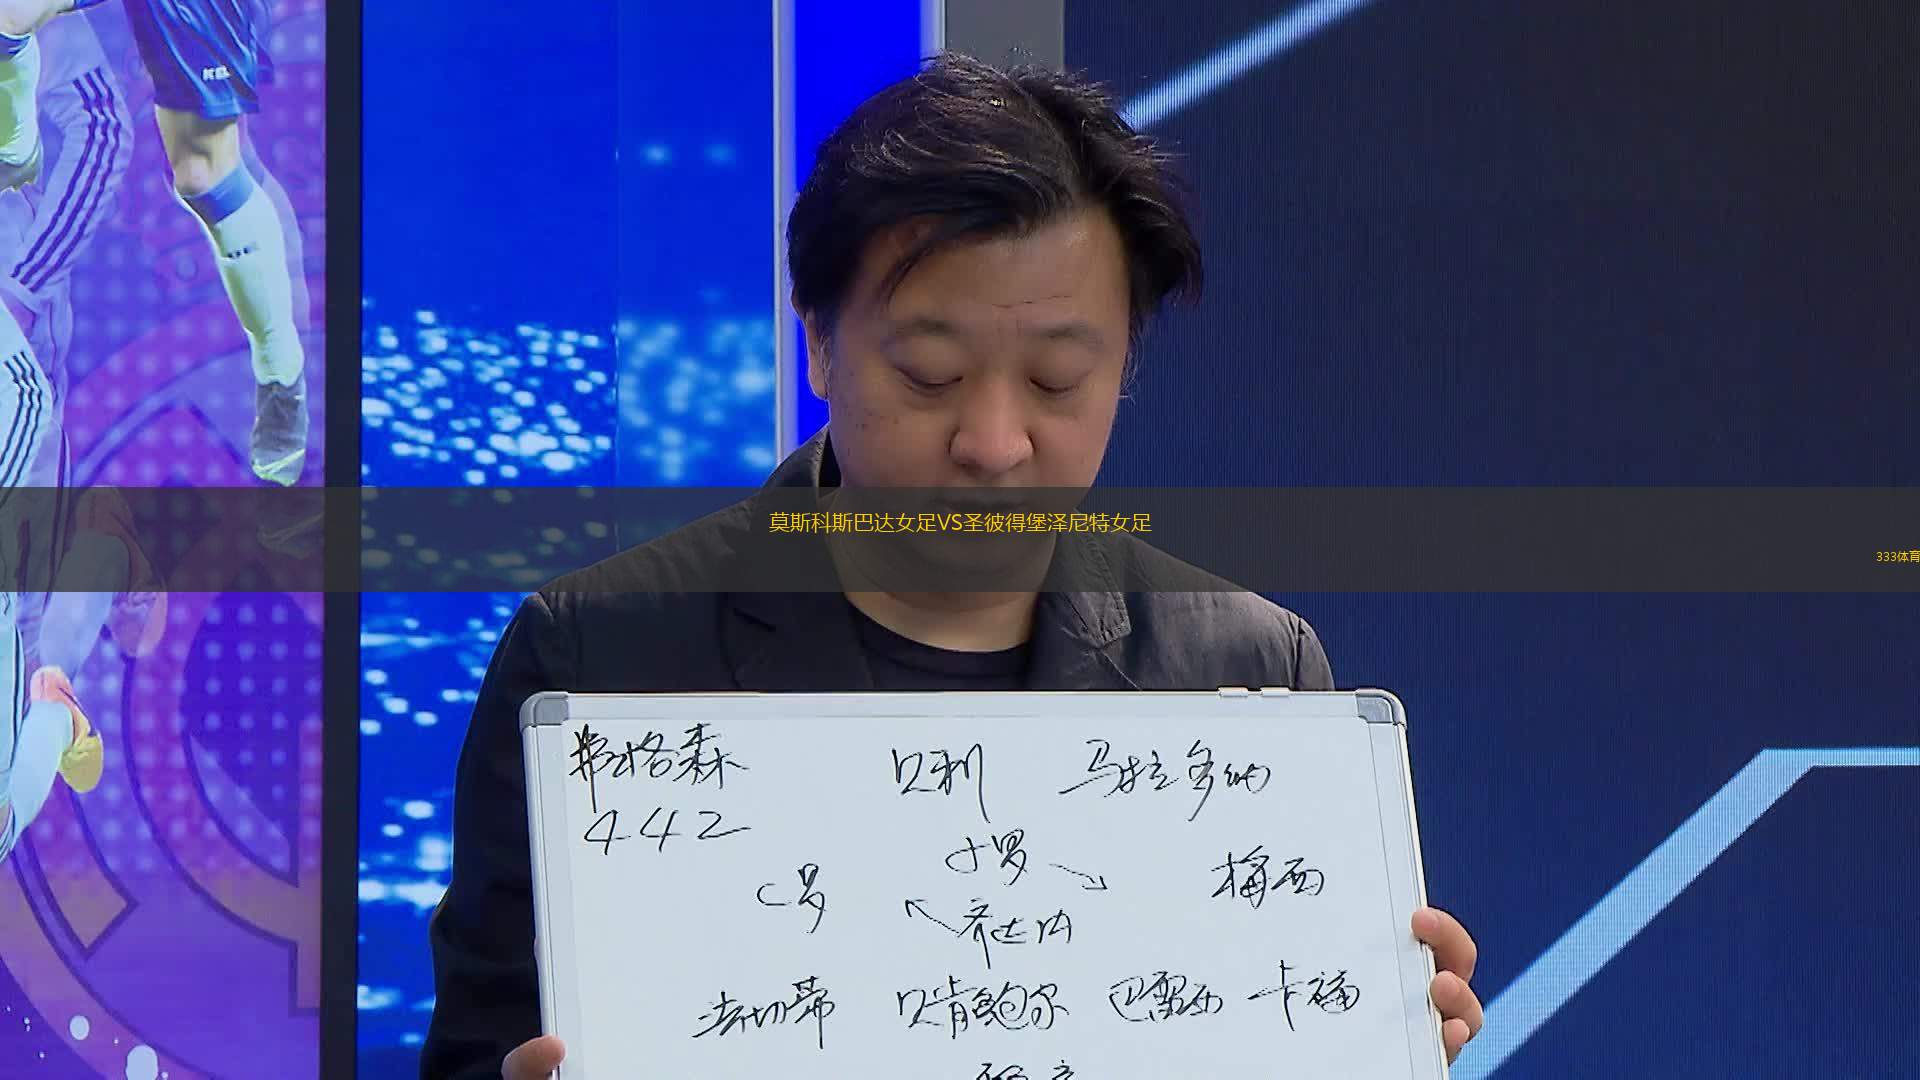 KEL
莫斯科斯巴达女足VS圣彼得堡泽尼特女足
333体育
弗格森 贝利 马拉多纳
442
小罗
C罗 梅西
齐达内
法切蒂 贝肯鲍尔 巴雷西 卡福